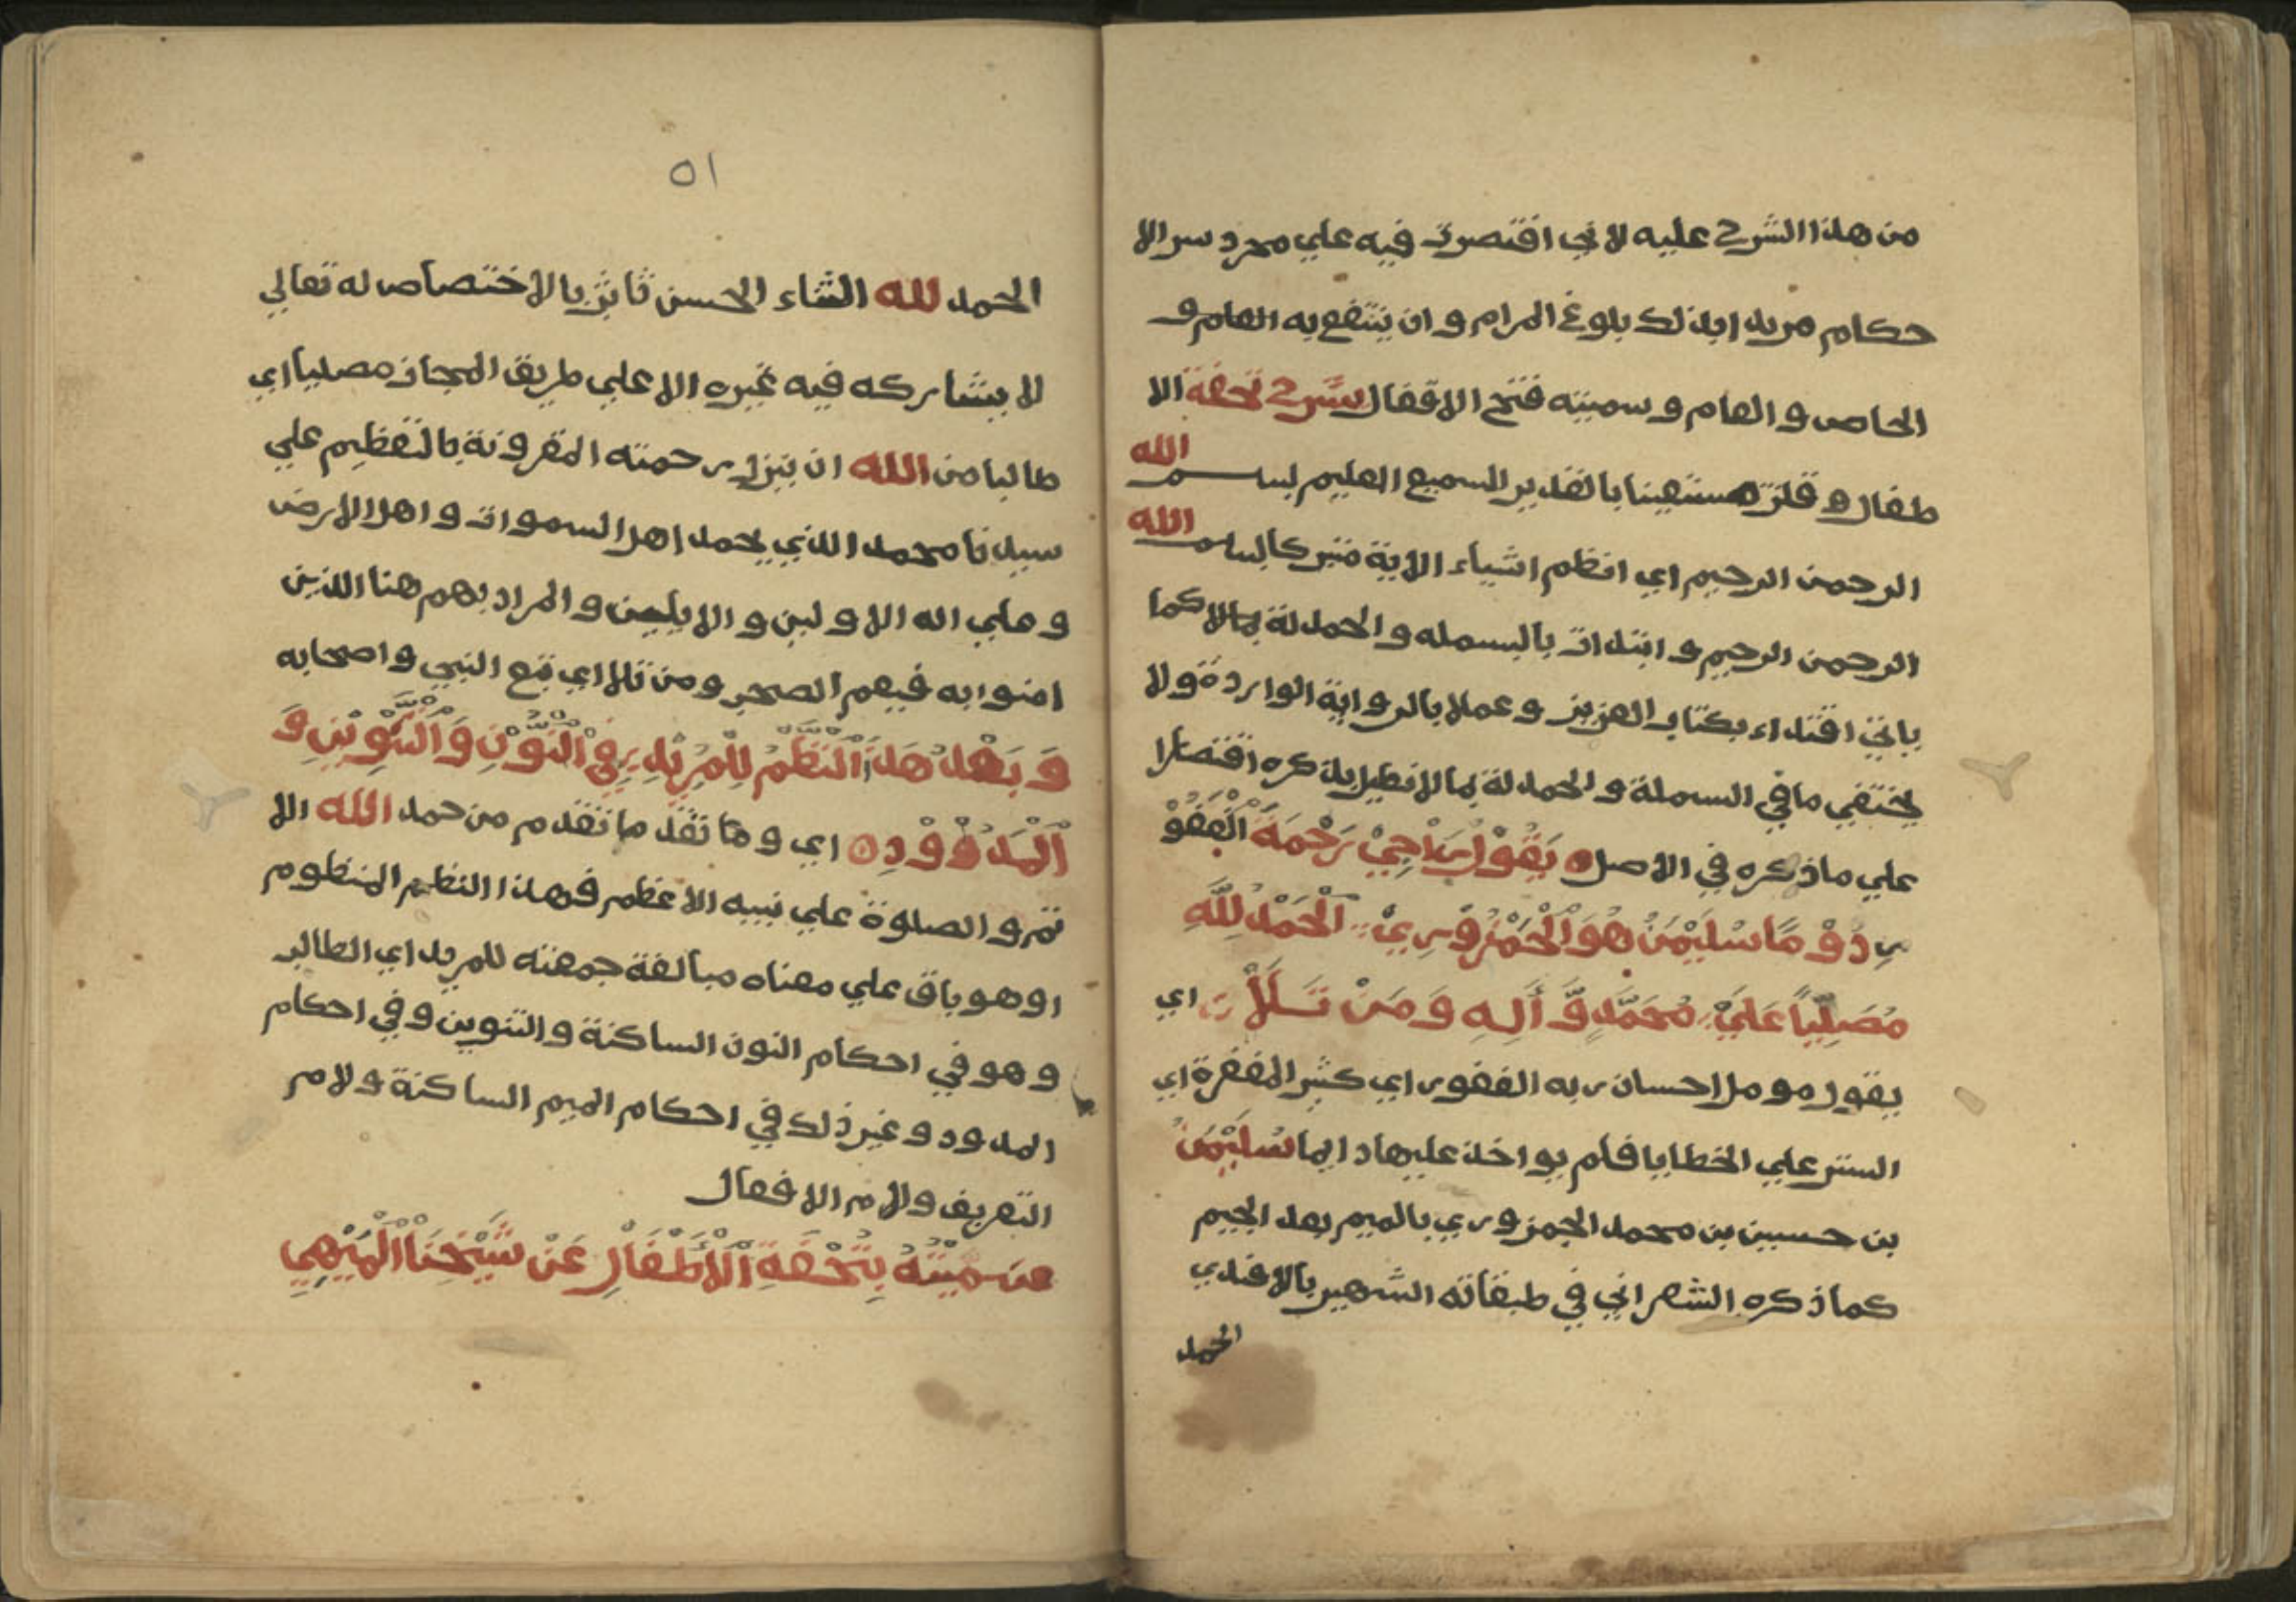 من هذا الشرح عليه لاني اقتصرت فيه علي مجرد سر الا
حكام مريدا بذلك بلوغ المرام و ان ينتفع به العام و
الخاص و العام و سميته فتح الاقفال شرح تحفة الا
طفال و قلت مستعينا بالقدير السميع العليم بسم الله
الرحمن الرحيم اي انظم اشياء الاية متبركا بسم الله
الرحمن الرحيم و ابتدات بالبسمله و الحمدلة كما
ياتي اقتداء بكتاب العزيز و عملا بالرواية الواردة و لا
يختفي ما في البسملة و الحمدلة بما لا نطيل بذكره اقتصارا
علي ما ذكره في الاصل ه يَقُوْلُ رَاجِيْ رَحْمَةَ الْغَفُوْ
رِ دُوْ مًا سُلَيْمٰنُ هُوَ الْجَمْزُوْرِيْ الْحَمْدُ لِلَّهِ
مُصَلِّيًا عَلَيْ مُحَمَّدٍ وَّ أٰلِهِ وَ مَنْ تَلَا اي
يقول مومل احسان ربه الغفور اي كثير المغفرة اي
الستر علي الخطايا فلم يواخذ عليها دايما سُلَيْمٰنُ
بن حسين بن محمد الجمزوري بالميم بعد الجيم
كما ذكره الشعراني في طبقاته الشهير بالافندي
الحمد
٥١
الحمد لله الثناء الحسن ثابت بالاختصاص له تعالي
لا يشاركه فيه غيره الا علي طريق المجاز مصليا اي
طالبا من الله ان ينزل رحمته المقرونة بالتعظيم علي
سيدنا محمد الذي يحمد اهل السموات و اهل الارض
و علي اله الاولين و المراد بهم هنا الذين
امنوا به فيعم الصحب و من تلا اي تبع النبي و اصحابه
وَ بَعْدُ هَذَا النَّظْمُ لِلْمُرِيْدِ فِي النُّوْنِ وَ التَّنْوِيْنِ وَ
الْمُدُوْدِ ه اي و ما تقد ما تقدم من حمد الله الا
تم و الصلوة علي نبيه الاعظم فهذا النظم المنظوم
او هو باق علي معناه مبالغة جمعته للمريد اي الطالب
و هو في احكام النون الساكنة و التنوين و في احكام
المدود و غير ذلك في احكام الميم الساكنة و لام
التعريف و لام الافعال
سميته بِتُحْفَةِ الْأَطْفَالِ عَنْ شَيْخِنَا الْمِيْهِي